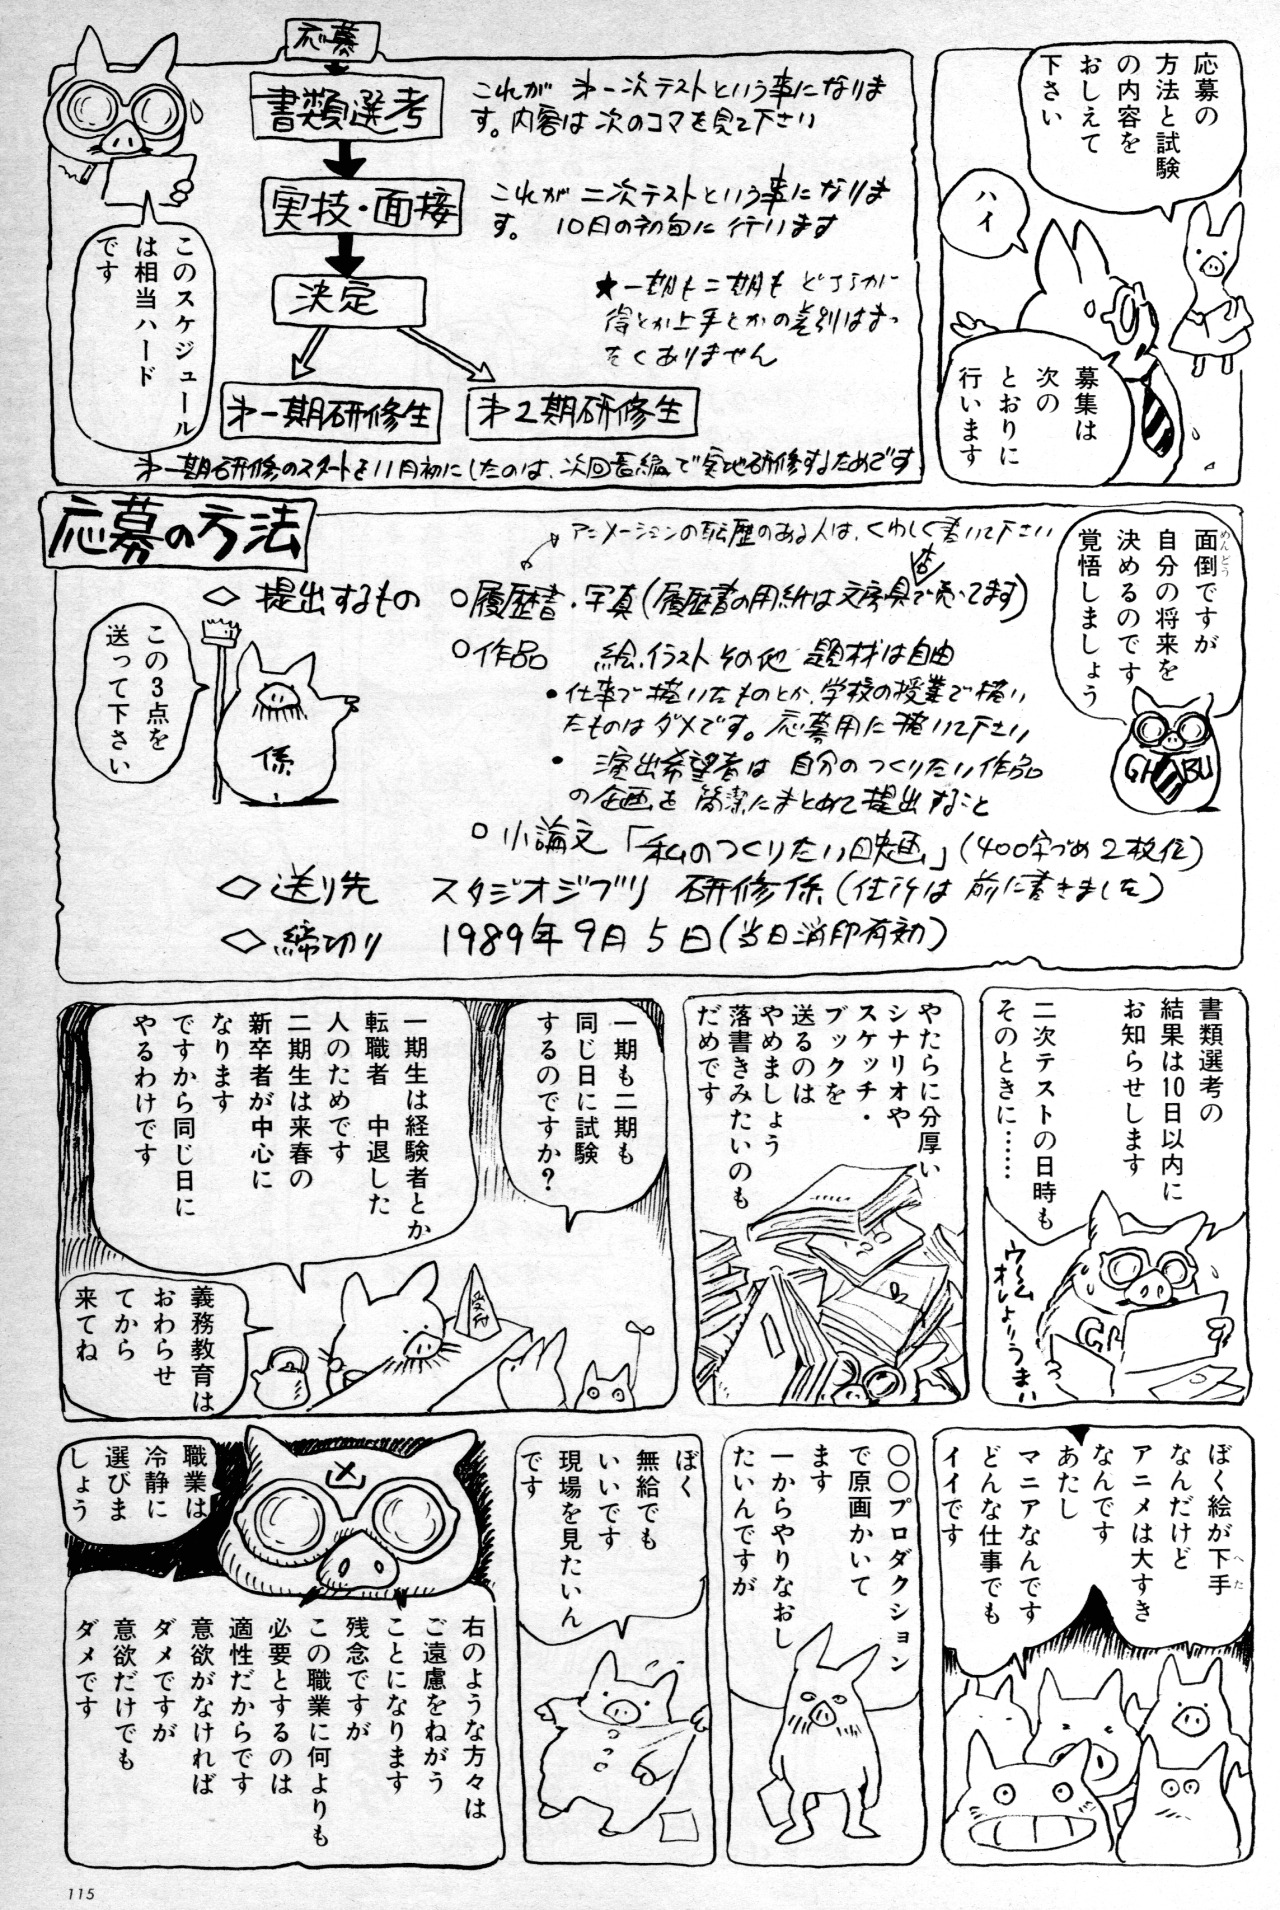 応募の
方法と試験
の内容を
おしえて
下さい
ハイ
募集は
次の
とおりに
行います
応募
書類選考
これが 才一次テストという事になりま
す。内容は次のコマを見て下さい
実技・面接
これが 二次テストという事になりま
す。 10月の初旬に行います
決定
★一期も二期も どちらが
得とか上手とかの差別はまっ
たくありません
才一期研修生
才2期研修生
才一期研修のスタートを11月初にしたのは、次回長編で実地研修するためです
このスケジュール
は相当ハード
です
面倒ですが
めんどう
自分の将来を
決めるのです
覚悟しましょう
GHIBU
応募の方法
アニメーションの転歴のある人は、くわしく書いて下さい
◇ 提出するもの ○履歴書・写真(履歴書の用紙は文房具店で売ってます)
○作品 絵、イラスト その他 題材は自由
・仕事で描いたものとか、学校の授業で描い
たものはダメです。応募用に描いて下さい
・演出希望者は 自分のつくりたい作品
の企画を 簡潔にまとめて提出すること
○小論文「私のつくりたい映画」(400字づめ2枚位)
◇送り先 スタジオジブリ 研修係(住所は 前に書きました)
◇締切り 1989年9月5日(当日消印有効)
この3点を
送って下さい
係
書類選考の
結果は10日以内に
お知らせします
二次テストの日時も
そのときに……
ウーム
オレよりうまい
やたらに分厚い
シナリオや
スケッチ・
ブックを
送るのは
やめましょう
落書きみたいのも
だめです
一期も二期も
同じ日に試験
するのですか?
一期生は経験者とか
転職者 中退した
人のためです
二期生は来春の
新卒者が中心に
なります
ですから同じ日に
やるわけです
受付
義務教育は
おわらせ
てから
来てね
ぼく絵が下手
へた
なんだけど
アニメは大すき
なんです
あたし
マニアなんです
どんな仕事でも
イイです
○○プロダクション
で原画かいて
ます
一からやりなおし
たいんですが
ぼく
無給でも
いいです
現場を見たいん
です
職業は
冷静に
選びま
しょう
右のような方々は
ご遠慮をねがう
ことになります
残念ですが
この職業に何よりも
必要とするのは
適性だからです
意欲がなければ
ダメですが
意欲だけでも
ダメです
115